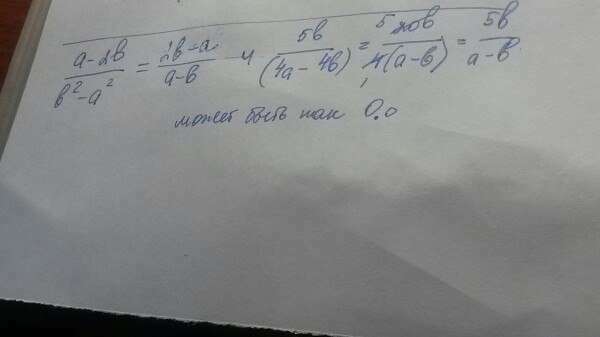 (a-2b)/(b²-a²) = (2b-a)/(a-b) и 5b/(4a-4b) = 5 20b/4(a-b) = 5b/(a-b)
может быть так 0.o